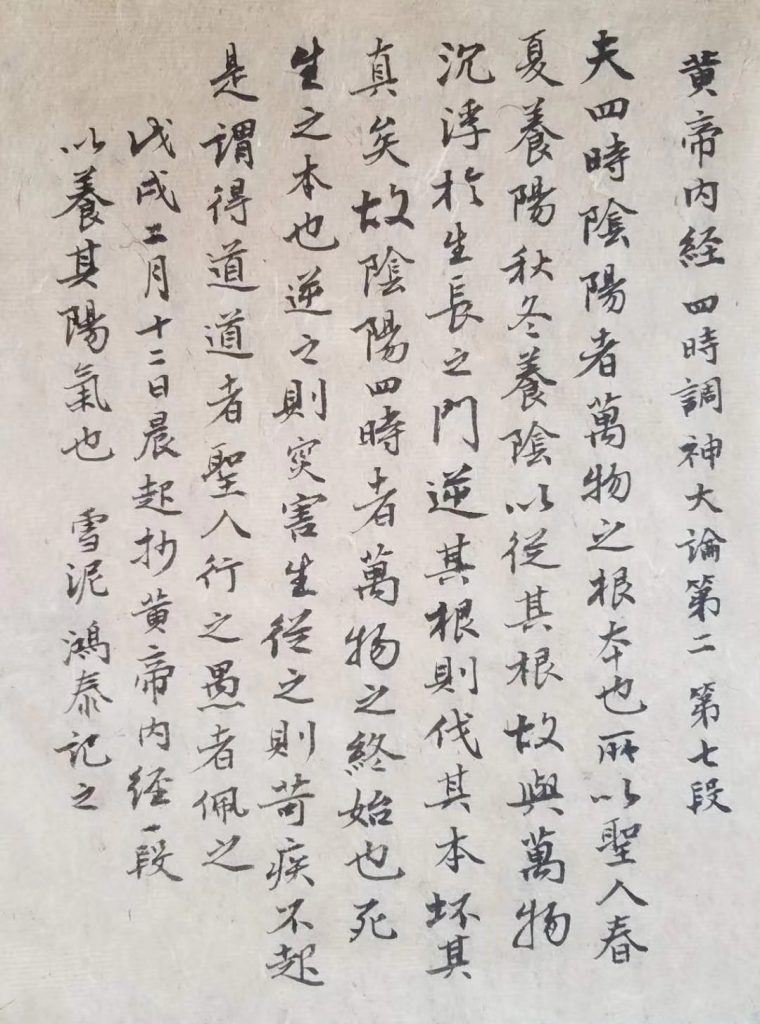 黄帝内経 四時調神大論第二 第七段
夫四時陰陽者萬物之根本也所以聖人春
夏養陽秋冬養陰以從其根故與萬物
沉浮於生長之門逆其根則伐其本坏其
真矣故陰陽四時者萬物之終始也死
生之本也逆之則災害生從之則苛疾不起
是謂得道道者聖人行之愚者佩之
戊戌二月十二日晨起抄黄帝内経一段
以養其陽氣也 雪泥鴻泰記之